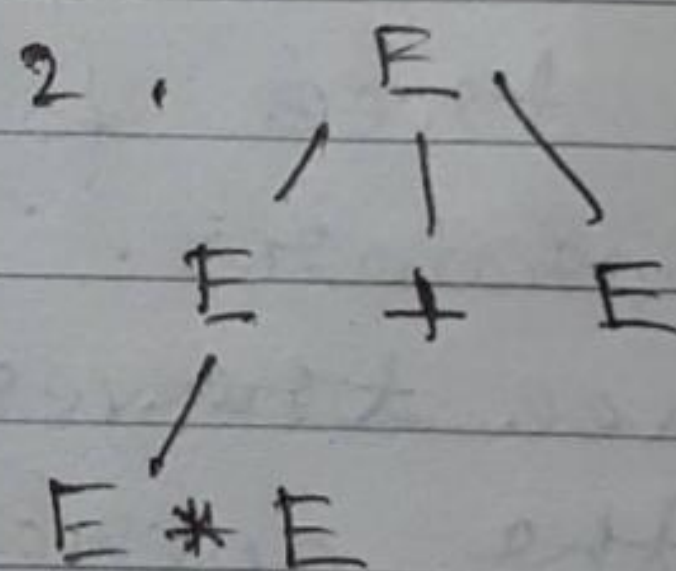 2. E
E + E
E * E